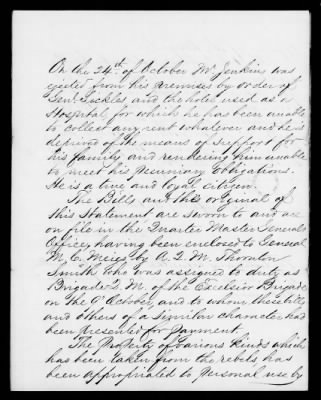 On the 24th of October Mr Jenkins was
ejected from his premises by order of
Genl Sickles and the hotel used as a
Hospital for which he has been unable
to collect any rent whatever and he is
deprived of the means of support for
his family and rendering him unable
to meet his pecuniary obligations.
He is a true and loyal citizen.
The Bills and the original of
this Statement are sworn to and are
on file in the Quarter Master Generals
Office, having been enclosed to General
M. C. Meigs by A. Q. M. Thornton
Smith who was assigned to duty as
Brigade Q. M. of the Excelsior Brigade
on the 9th October, and to whom these bills
and others of a similar character had
been presented for payment.
The Property of various kinds which
has been taken from the rebels has
been appropriated to personal use by